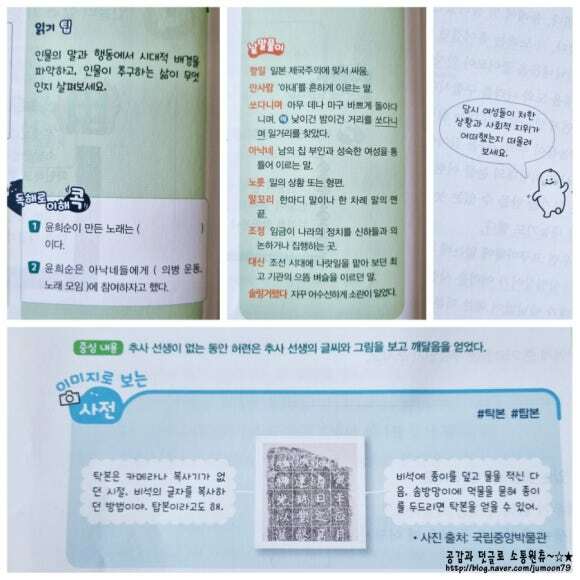 읽기
인물의 말과 행동에서 시대적 배경을
파악하고, 인물이 추구하는 삶이 무엇
인지 살펴보세요.
독해로 이해 콕
1 윤희순이 만든 노래는 ( )
이다.
2 윤희순은 아낙네들에게 ( 의병 운동,
노래 모임 )에 참여하자고 했다.
낱말풀이
항일 일본 제국주의에 맞서 싸움.
안사람 '아내'를 흔하게 이르는 말.
쏘다니며 아무 데나 마구 바쁘게 돌아다
니며. 예 낮이건 밤이건 거리를 쏘다니
며 일거리를 찾았다.
아낙네 남의 집 부인과 성숙한 여성을 통
틀어 이르는 말.
노릇 일의 상황 또는 형편.
말꼬리 한마디 말이나 한 차례 말의 맨
끝.
조정 임금이 나라의 정치를 신하들과 의
논하거나 집행하는 곳.
대신 조선 시대에 나랏일을 맡아 보던 최
고 기관의 으뜸 벼슬을 이르던 말.
술렁거렸다 자꾸 어수선하게 소란이 일었다.
당시 여성들이 처한
상황과 사회적 지위가
어떠했는지 떠올려
보세요.
중심 내용 추사 선생이 없는 동안 허련은 추사 선생의 글씨와 그림을 보고 깨달음을 얻었다.
이미지로 보는
사전
#탁본 #탑본
탁본은 카메라나 복사기가 없
던 시절, 비석의 글자를 복사하
던 방법이야. 탑본이라고도 해.
비석에 종이를 덮고 물을 적신 다
음, 솜방망이에 먹물을 묻혀 종이
를 두드리면 탁본을 얻을 수 있어.
• 사진 출처: 국립중앙박물관
공감과 덧글로 소통원츄~☆★
http://blog.naver.com/jumoon79